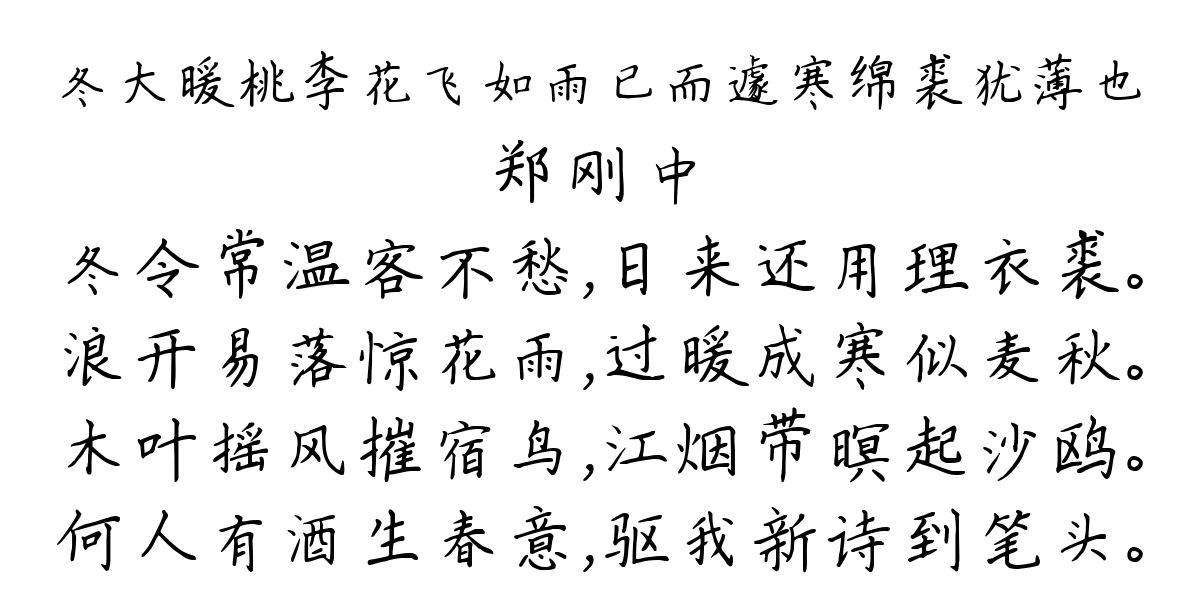 冬大暖桃李花飞如雨已而遽寒绵裘犹薄也
郑刚中
冬令常温客不愁,日来还用理衣裘。
浪开易落惊花雨,过暖成寒似麦秋。
木叶摇风摧宿鸟,江烟带暝起沙鸥。
何人有酒生春意,驱我新诗到笔头。